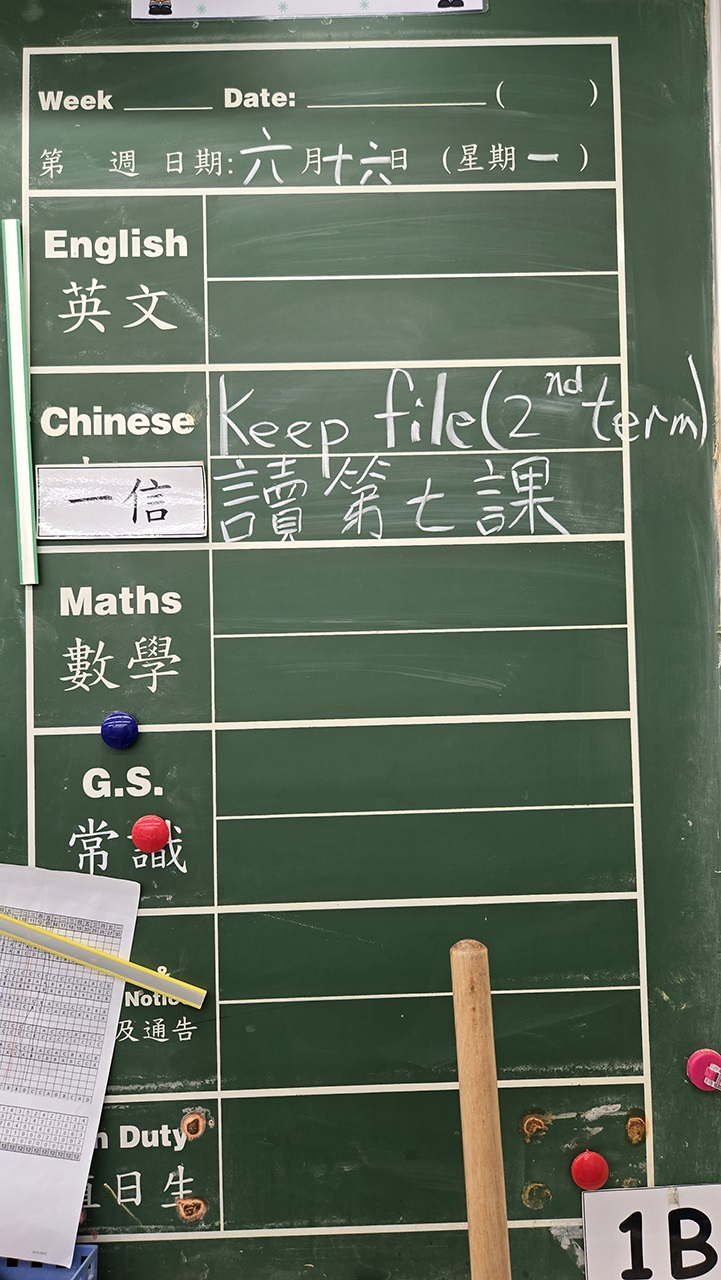 Week Date: ( )
第 週 日期:六月十六日 (星期一)
English
英文
Chinese
Keep file(2nd term)
一信
讀第七課
Maths
數學
G.S.
常識
&
及通告
Duty
日生
1B